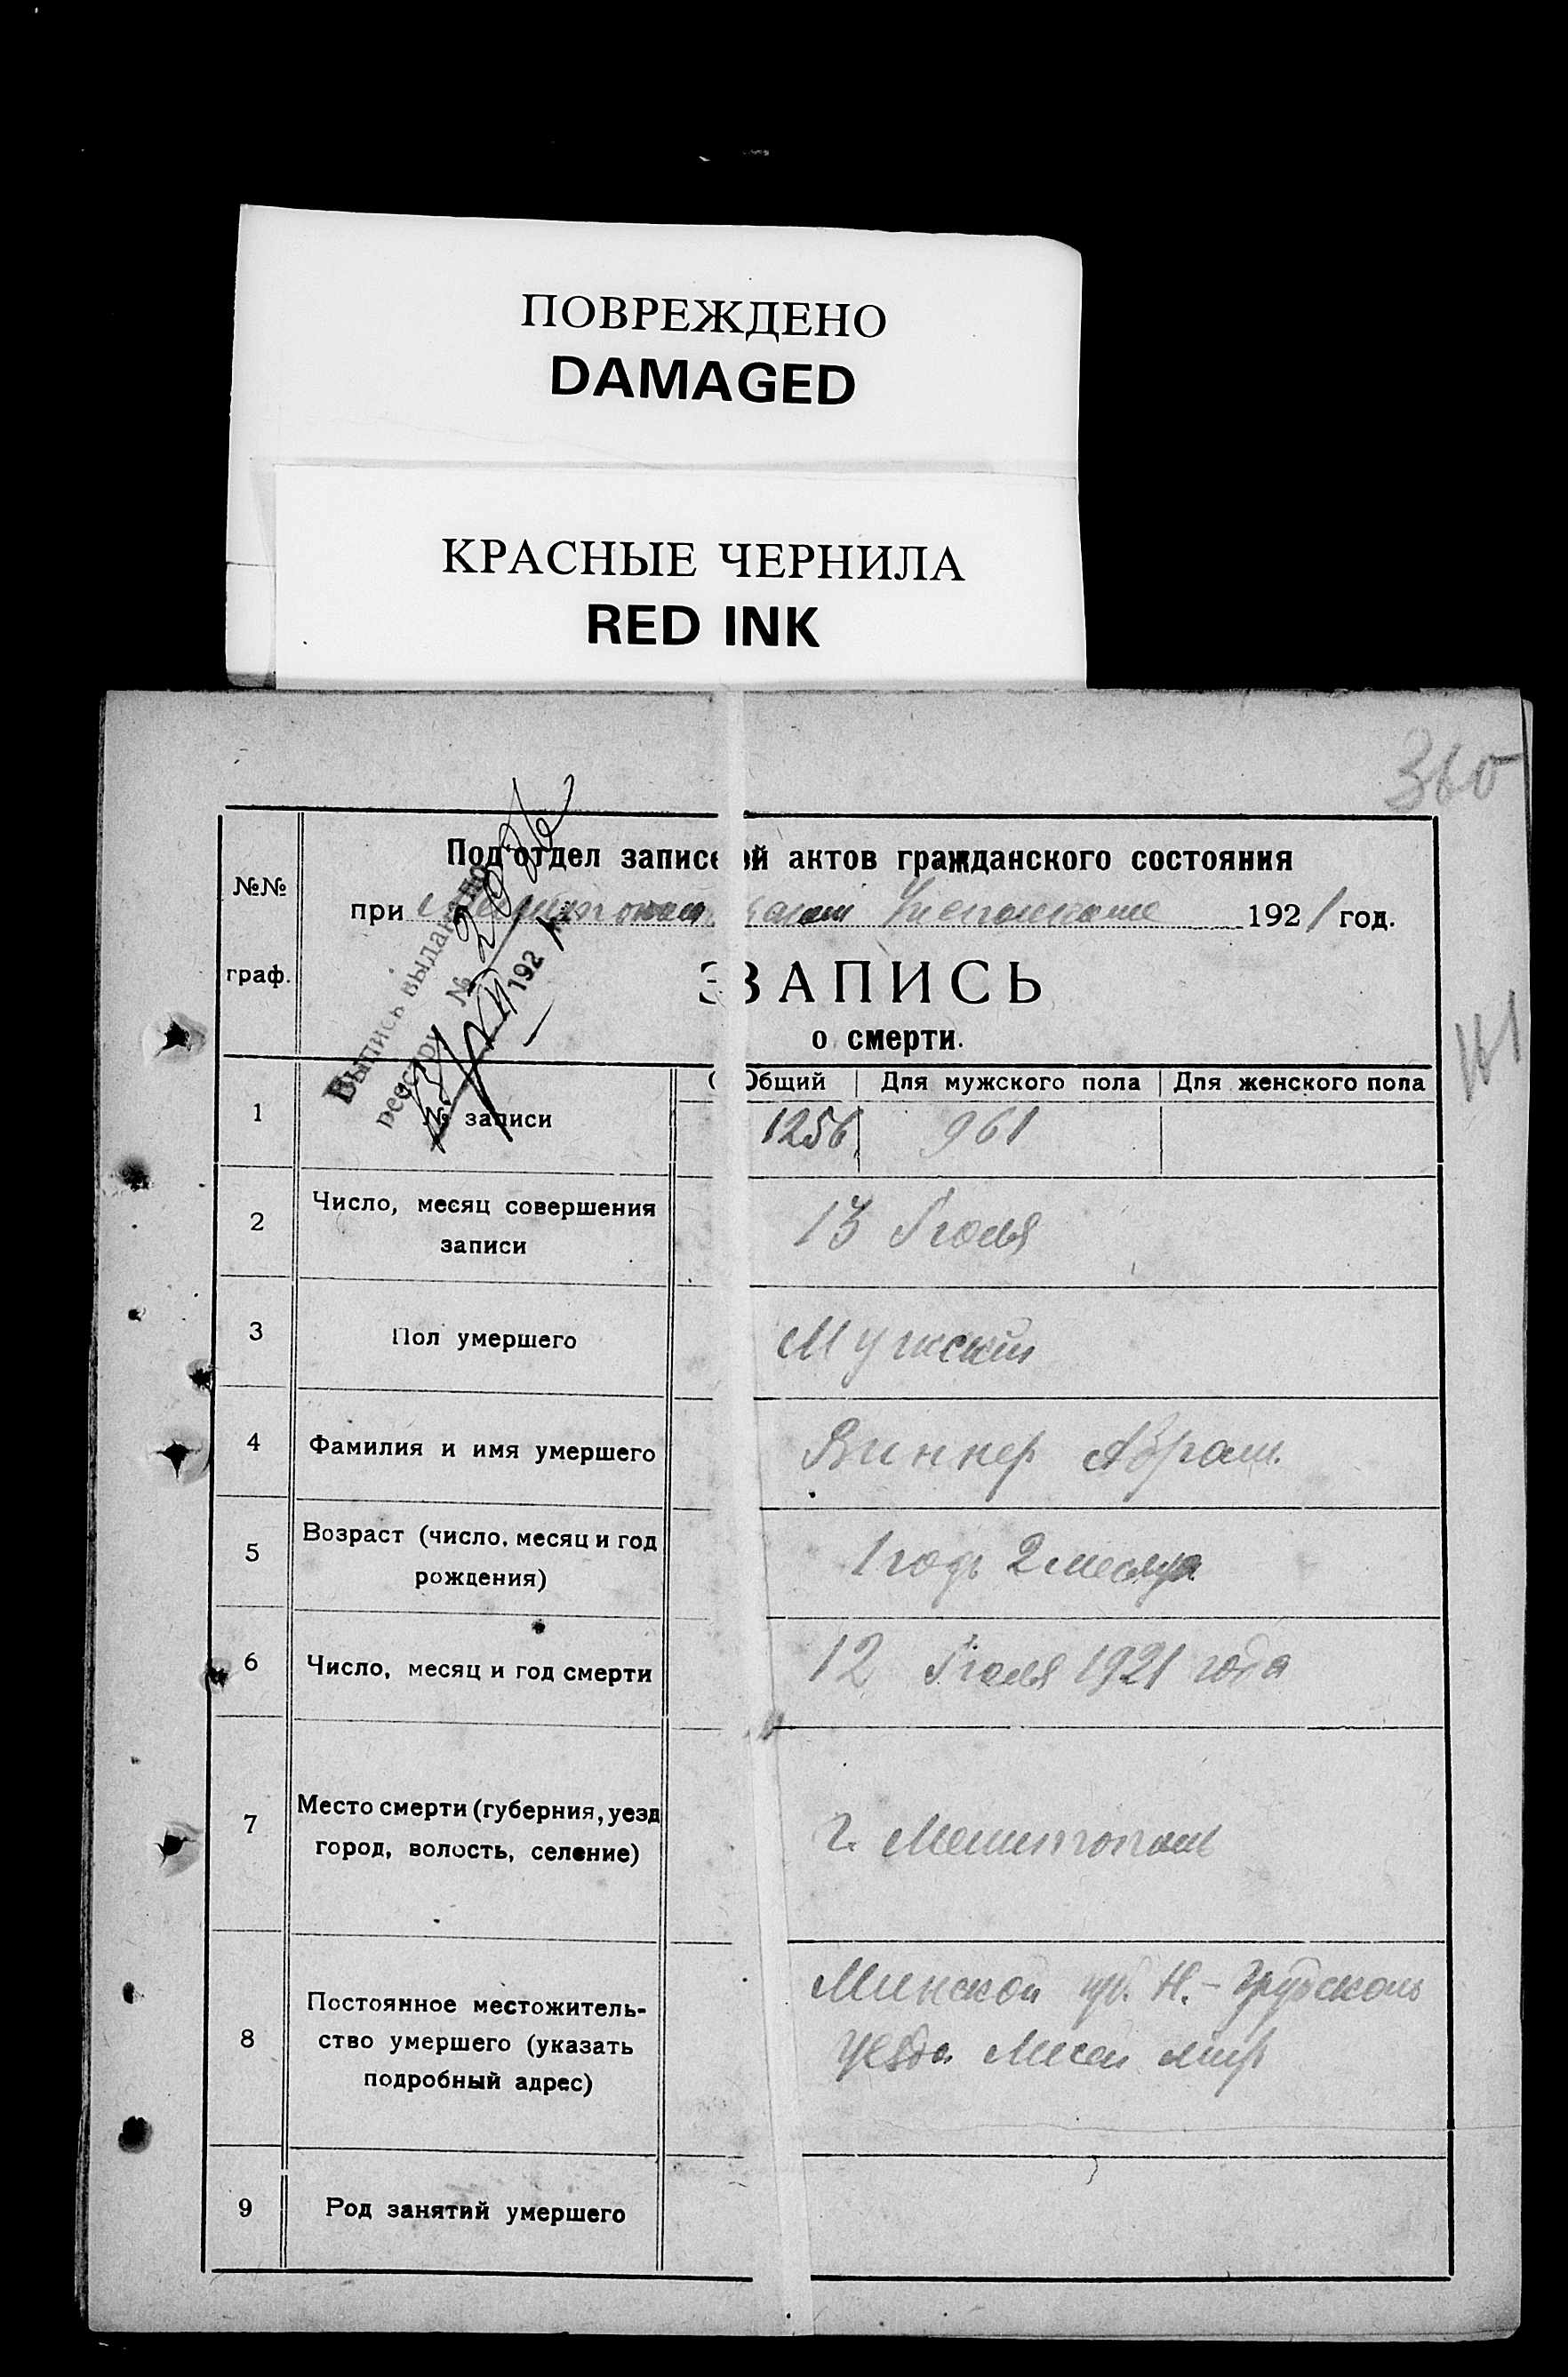 ПОВРЕЖДЕНО
DAMAGED
КРАСНЫЕ ЧЕРНИЛА
RED INK
360
№№
граф.
Под'отдел записей актов гражданского состояния
при 1921 год.
Выпись выдана по
реестру №
192
ЗАПИСЬ
о смерти.
1
№ записи
Общий Для мужского пола Для женского пола
1256 961
2
Число, месяц совершения
записи
13 Іюля
3
Пол умершего
Мужский
4
Фамилия и имя умершего
Винкер Абрам.
5
Возраст (число, месяц и год
рождения)
1 годъ 2 месяца
6
Число, месяц и год смерти
12 Іюля 1921 года
7
Место смерти (губерния, уезд
город, волость, селение)
г. Мелитополь
8
Постоянное местожитель-
ство умершего (указать
подробный адрес)
Минской губ. Н.-
уезда мир
9
Род занятий умершего